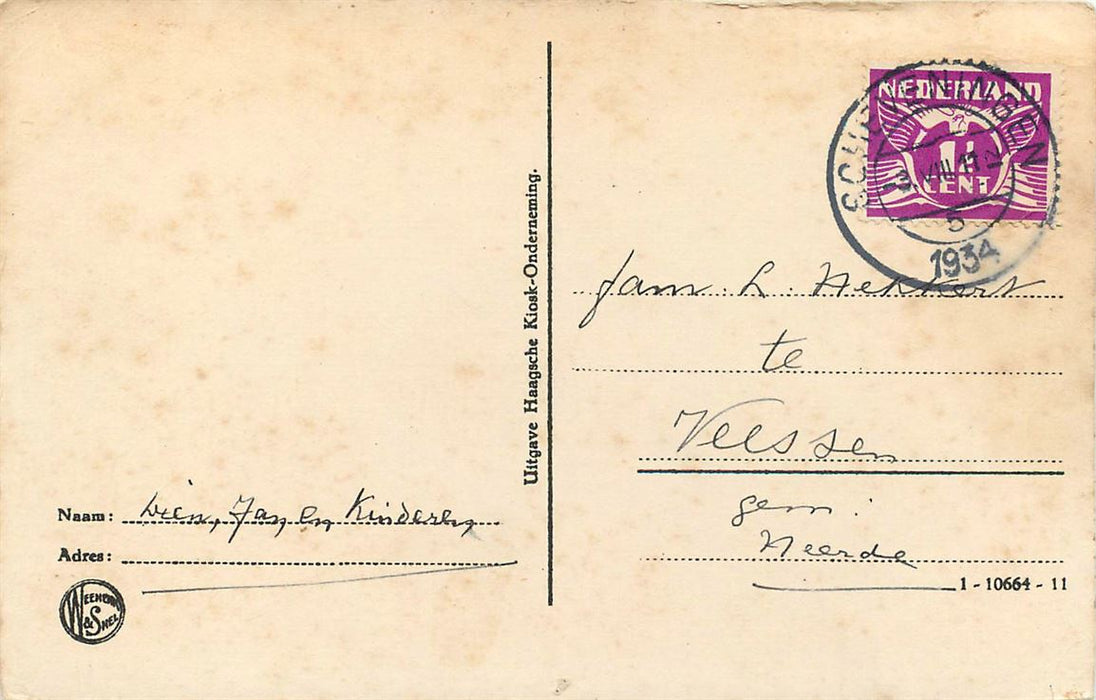 Uitgave Haagsche Kiosk-Onderneming.
Naam: Dien, Jan, en Kinderen
Adres:
WEENENK & SNEL
NEDERLAND
1½
CENT
SCHEVENINGEN
VIII.17
5
1934
Fam. L. Hekkert
te
Veessen
gem:
Heerde
1 - 10664 - 11